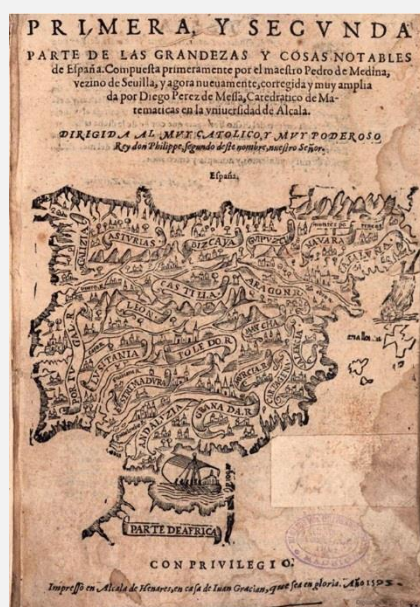 PRIMERA, Y SEGVNDA
PARTE DE LAS GRANDEZAS Y COSAS NOTABLES
de España. Compuesta primeramente por el maestro Pedro de Medina,
vezino de Seuilla, y agora nueuamente, corregida y muy amplia
da por Diego Perez de Messa, Catedratico de Ma-
tematicas en la vniuersidad de Alcala.
DIRIGIDA AL MVY CATOLICO, Y MVY PODEROSO
Rey don Philippe, segundo deste nombre, nuestro Señor.
España.
GALIZIA
ASTVRIAS
BIZCAYA
NAVARA
CATALVÑA
CASTILIA
ARAGON.R
LEON.R
PORTVGAL.R
LVSITANIA
TOLEDO.R
MANCHA
MVRCIA.R
ANDALVZIA
GRANADA.R
PARTE DE AFRICA
CON PRIVILEGIO.
Impresso en Alcala de Henares, en casa de Iuan Gracian, que sea en gloria. Año